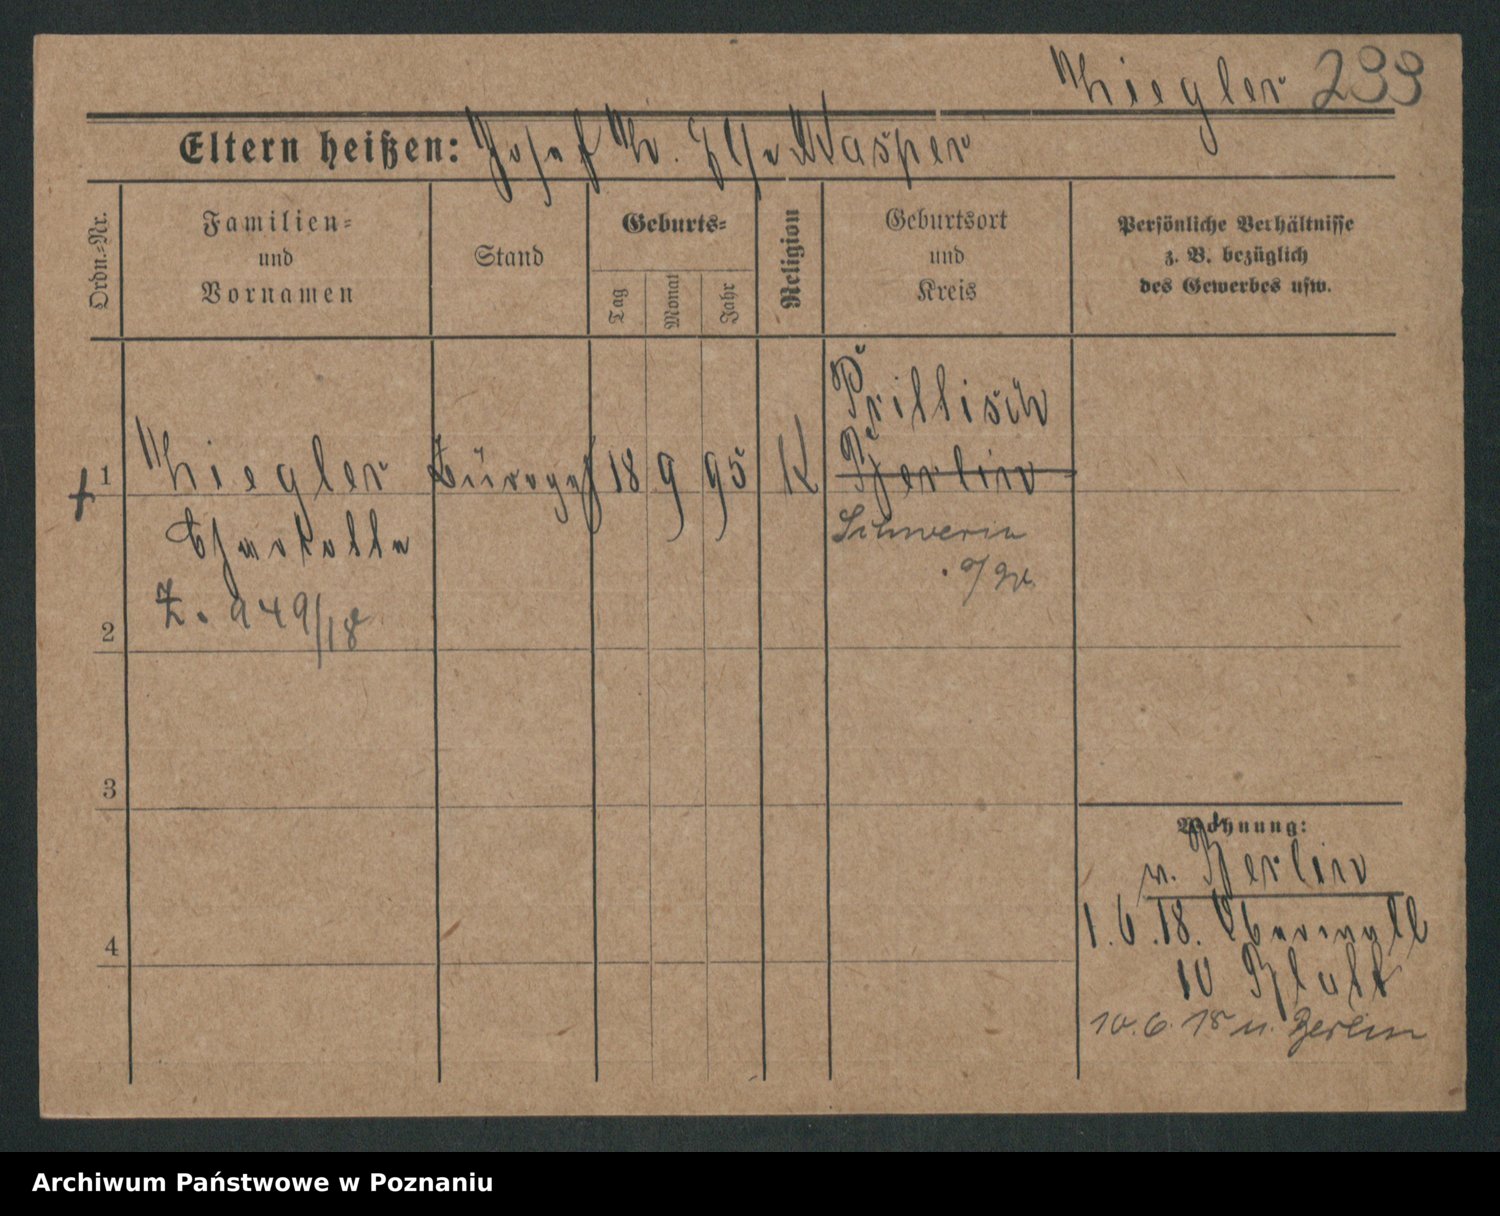 Ziegler 233
Eltern heißen: Josef Z. Else Kasper
Ordn.-Nr.
Familien-
und
Vornamen
Stand
Geburts-
Tag
Monat
Jahr
Religion
Geburtsort
und
Kreis
Persönliche Verhältnisse
z. B. bezüglich
des Gewerbes usw.
Prillisch
1 Ziegler Bürogeh 18 9 95 K Berlin
Charlotte
Schwerin
Z. 949/18
2
3
4
Wohnung:
v. Berlin
1.6.18. Oberwall
10
10.6.18 n. Berlin
Archiwum Państwowe w Poznaniu